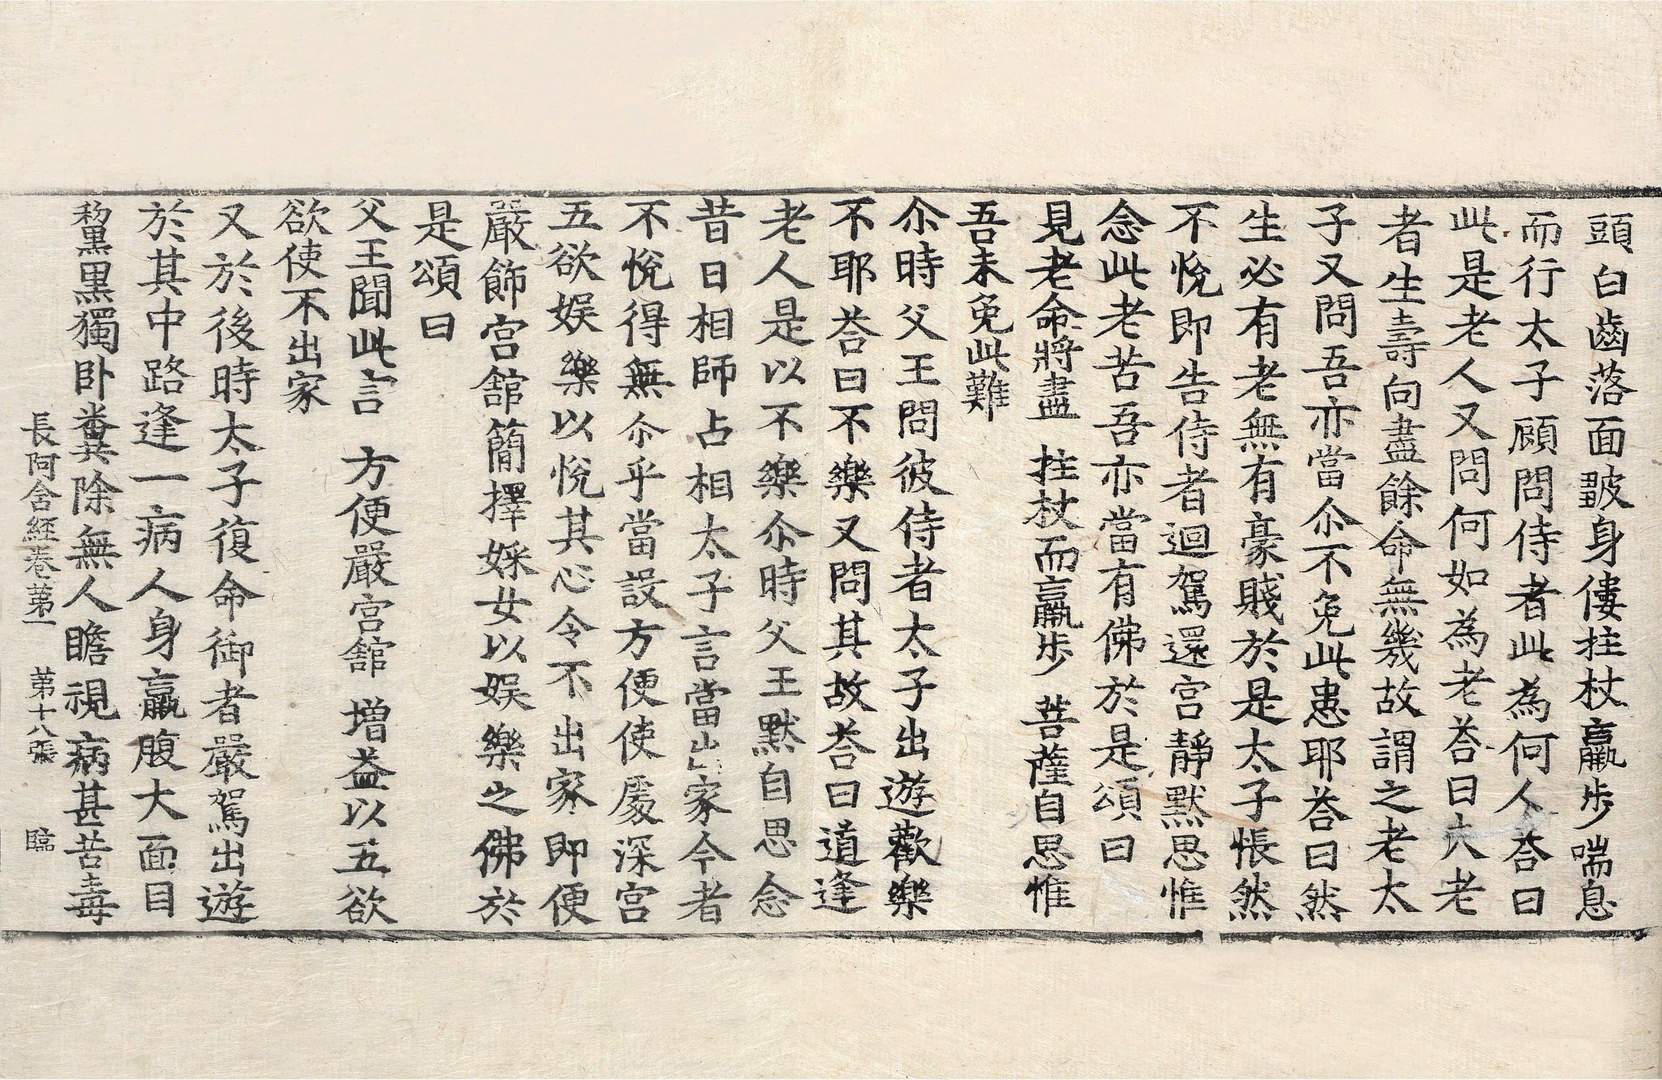 頭白齒落面皺身僂拄杖羸步喘息
而行太子顧問侍者此為何人荅曰
此是老人又問何如為老荅曰夫老
者生壽向盡餘命無幾故謂之老太
子又問吾亦當尒不免此患耶荅曰然
生必有老無有豪賤於是太子悵然
不悅即告侍者迴駕還宮靜默思惟
念此老苦吾亦當有佛於是頌曰
見老命將盡 拄杖而羸步 菩薩自思惟
吾未免此難
尒時父王問彼侍者太子出遊歡樂
不耶荅曰不樂又問其故荅曰道逢
老人是以不樂尒時父王默自思念
昔日相師占相太子言當出家今者
不悅得無尒乎當設方便使處深宮
五欲娛樂以悅其心令不出家即便
嚴飾宮舘簡擇婇女以娛樂之佛於
是頌曰
父王聞此言 方便嚴宮舘 增益以五欲
欲使不出家
又於後時太子復命御者嚴駕出遊
於其中路逢一病人身羸腹大面目
黧黑獨卧糞除無人瞻視病甚苦毒
長阿含經卷第一 第十八張 臨